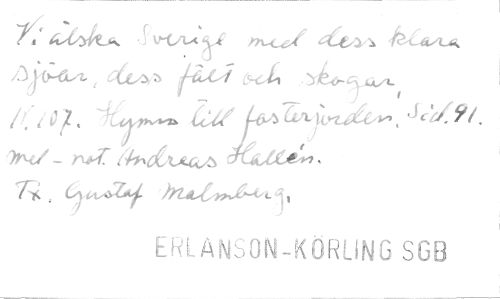 Vi älska Sverige med dess klara
sjöar, dess fält och skogar,
N. 107. Hymn till fosterjorden. Sid. 91.
mel-not. Andreas Hallén.
Tx. Gustaf Malmberg.
ERLANSON-KÖRLING SGB